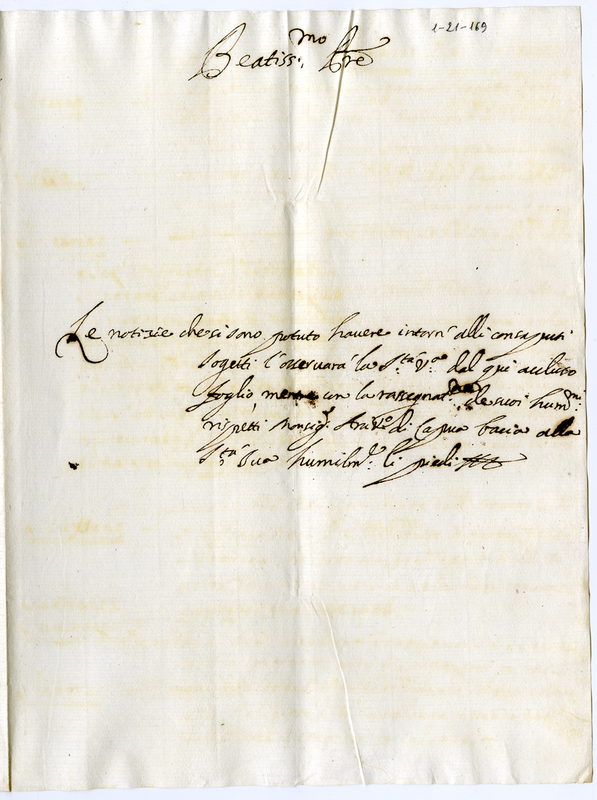 1-21-169
Beatiss.mo Pre
Le notizie che si sono potuto havere intorn' alli consaputi
sogetti l'osservarà la S.tà V.a del qui accluso
foglio, mentre con la rassegnat.ne de suoi hum.mi
rispetti Monsig.r Arciv.o di Capua bacia alla
S.tà Sua humilm.te li piedi